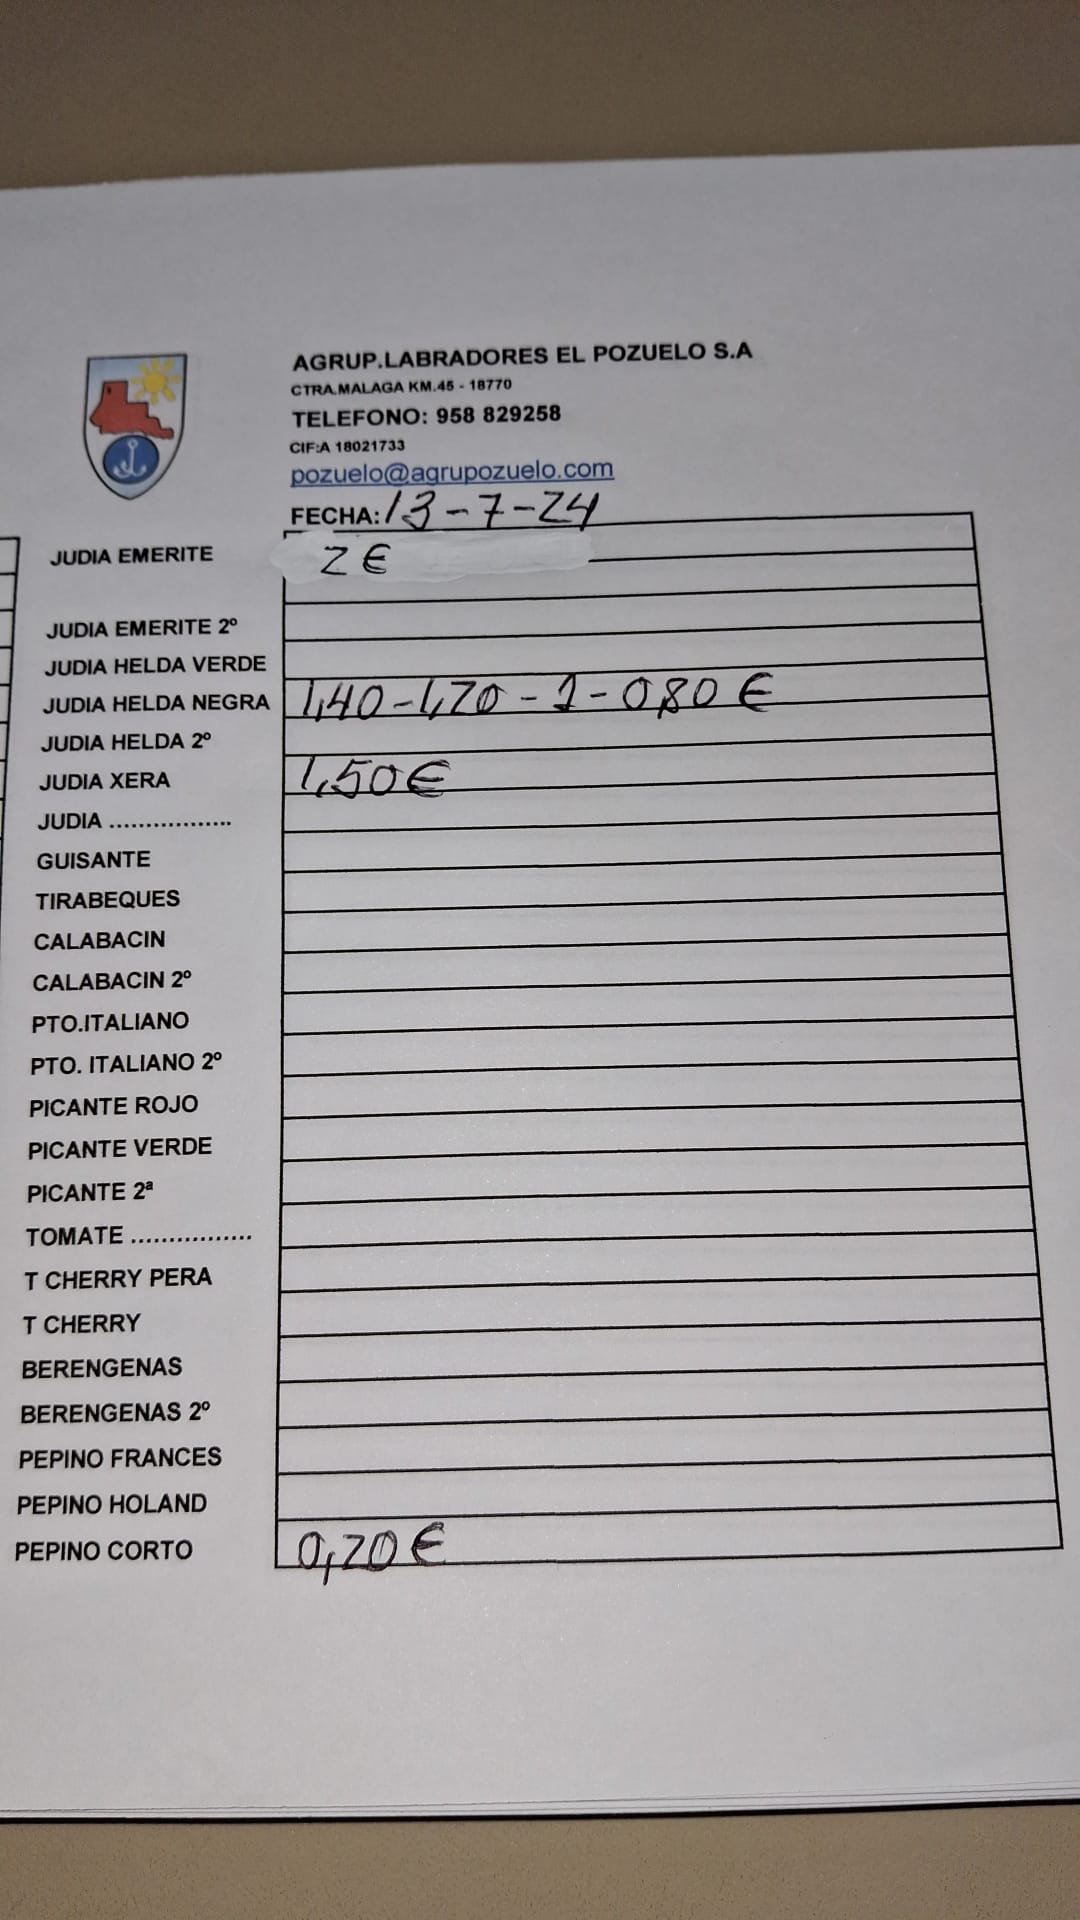 AGRUP.LABRADORES EL POZUELO S.A
CTRA.MALAGA KM.45 - 18770
TELEFONO: 958 829258
CIF:A 18021733
pozuelo@agrupozuelo.com
FECHA: 13-7-24
JUDIA EMERITE 2 €
JUDIA EMERITE 2º
JUDIA HELDA VERDE
JUDIA HELDA NEGRA 1,40-1,20-1-0,80 €
JUDIA HELDA 2º
JUDIA XERA 1,50 €
JUDIA .................
GUISANTE
TIRABEQUES
CALABACIN
CALABACIN 2º
PTO.ITALIANO
PTO. ITALIANO 2º
PICANTE ROJO
PICANTE VERDE
PICANTE 2ª
TOMATE ................
T CHERRY PERA
T CHERRY
BERENGENAS
BERENGENAS 2º
PEPINO FRANCES
PEPINO HOLAND
PEPINO CORTO 0,20 €